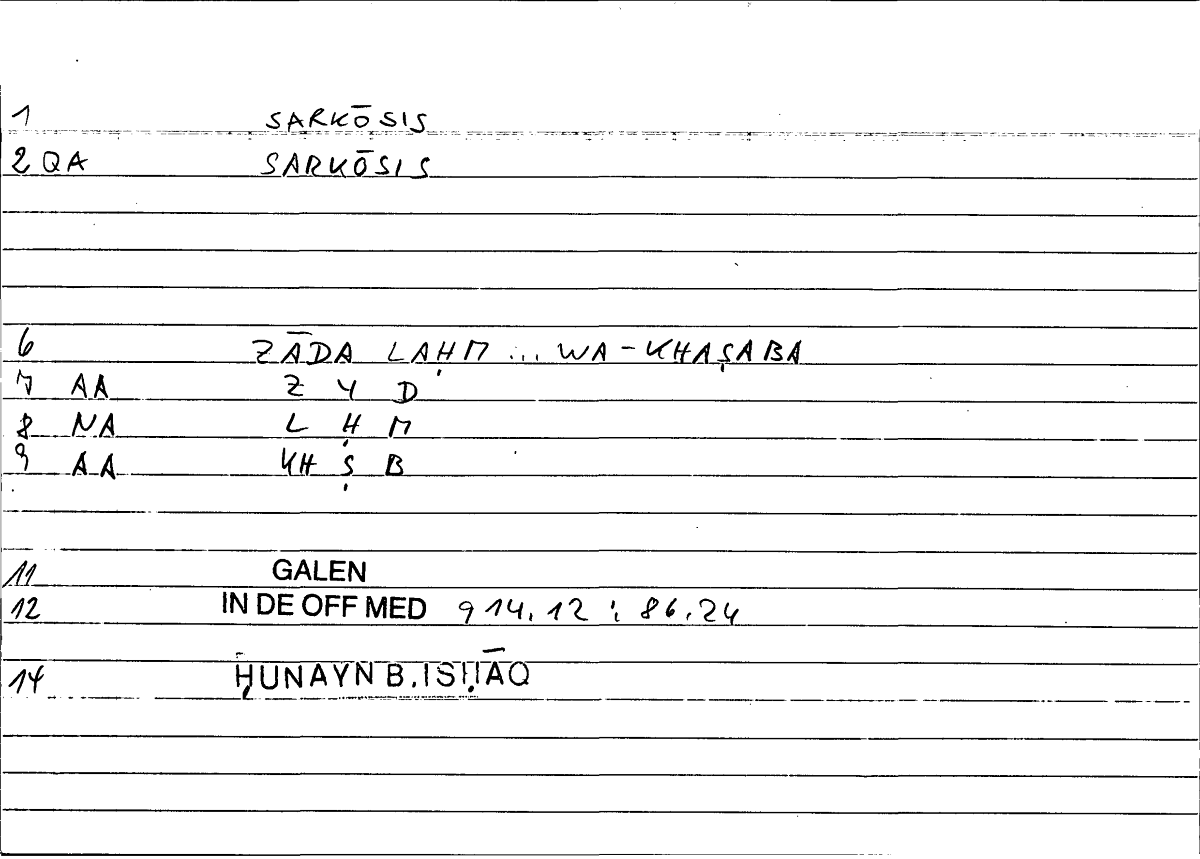 1 SARKŌSIS
2 QA SARKŌSIS
6 ZĀDA LAḤM ... WA-KHAṢABA
7 AA Z Y D
8 NA L Ḥ M
9 AA KH Ṣ B
11 GALEN
12 IN DE OFF MED 914.12 ; 86.24
14 ḤUNAYN B. ISḤĀQ